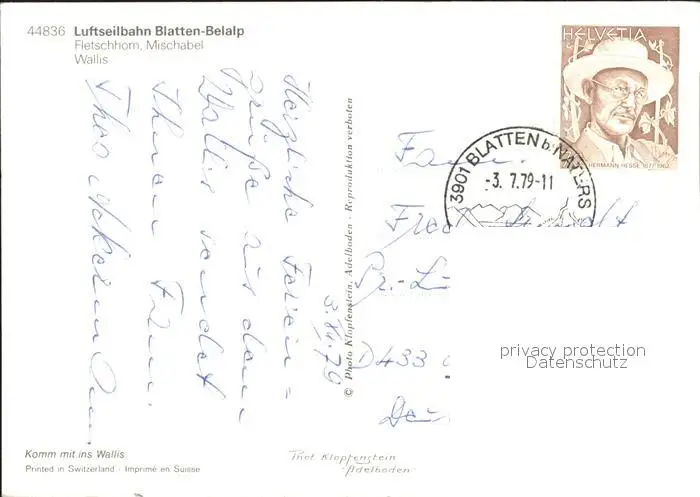 44836 Luftseilbahn Blatten-Belalp
Fletschhorn, Mischabel
Wallis
HELVETIA
HERMANN HESSE 1877-1962
3901 BLATTEN b. NATERS
-3. 7.79-11
3. VII. 79
Herzliche Ferien =
grüße aus dem
Wallis sendet
Ihnen
Theo
© Photo Klopfenstein, Adelboden - Reproduktion verboten
Fam.
Fred
D 433
privacy protection
Datenschutz
Komm mit ins Wallis
Printed in Switzerland · Imprimé en Suisse
Phot. Klopfenstein
Adelboden